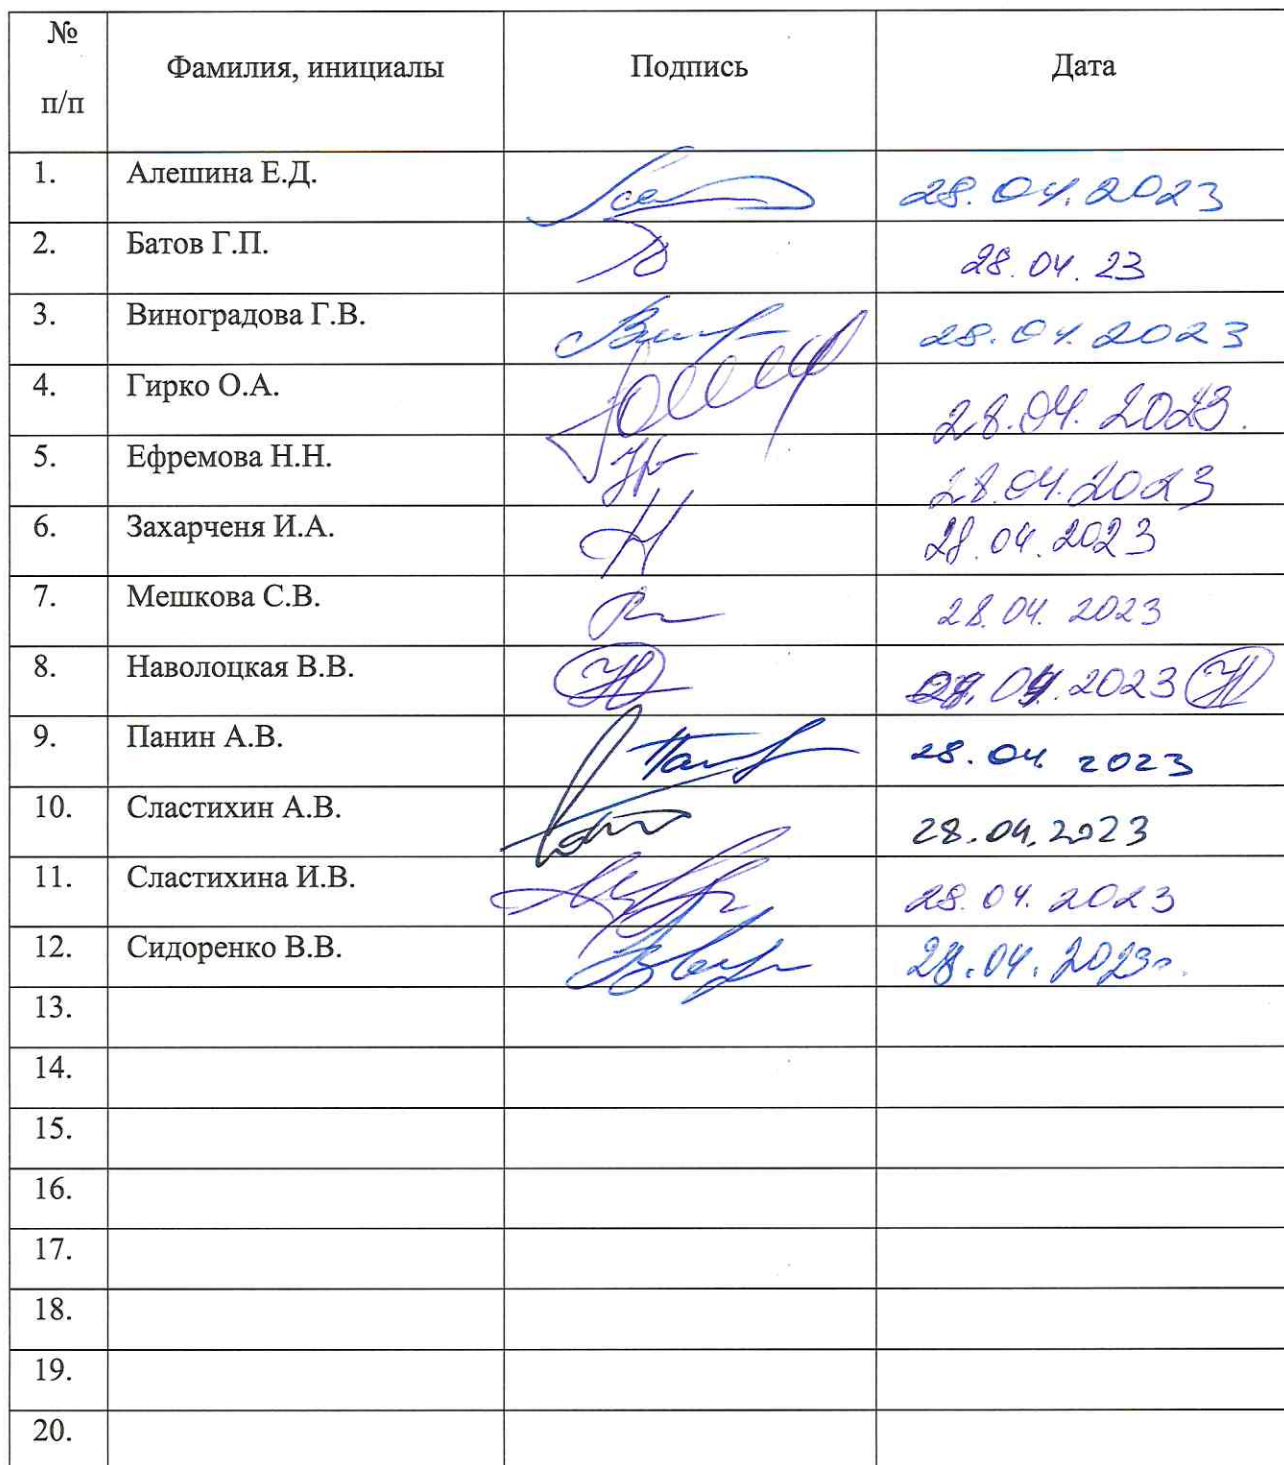 № п/п Фамилия, инициалы Подпись Дата
1. Алешина Е.Д. 28.04.2023
2. Батов Г.П. 28.04.23
3. Виноградова Г.В. 28.04.2023
4. Гирко О.А. 28.04.2023.
5. Ефремова Н.Н. 28.04.2023
6. Захарченя И.А. 28.04.2023
7. Мешкова С.В. 28.04.2023
8. Наволоцкая В.В. 04.2023
9. Панин А.В. 28.04 2023
10. Сластихин А.В. 28.04.2023
11. Сластихина И.В. 28.04.2023
12. Сидоренко В.В. 28.04.2023г.
13.
14.
15.
16.
17.
18.
19.
20.